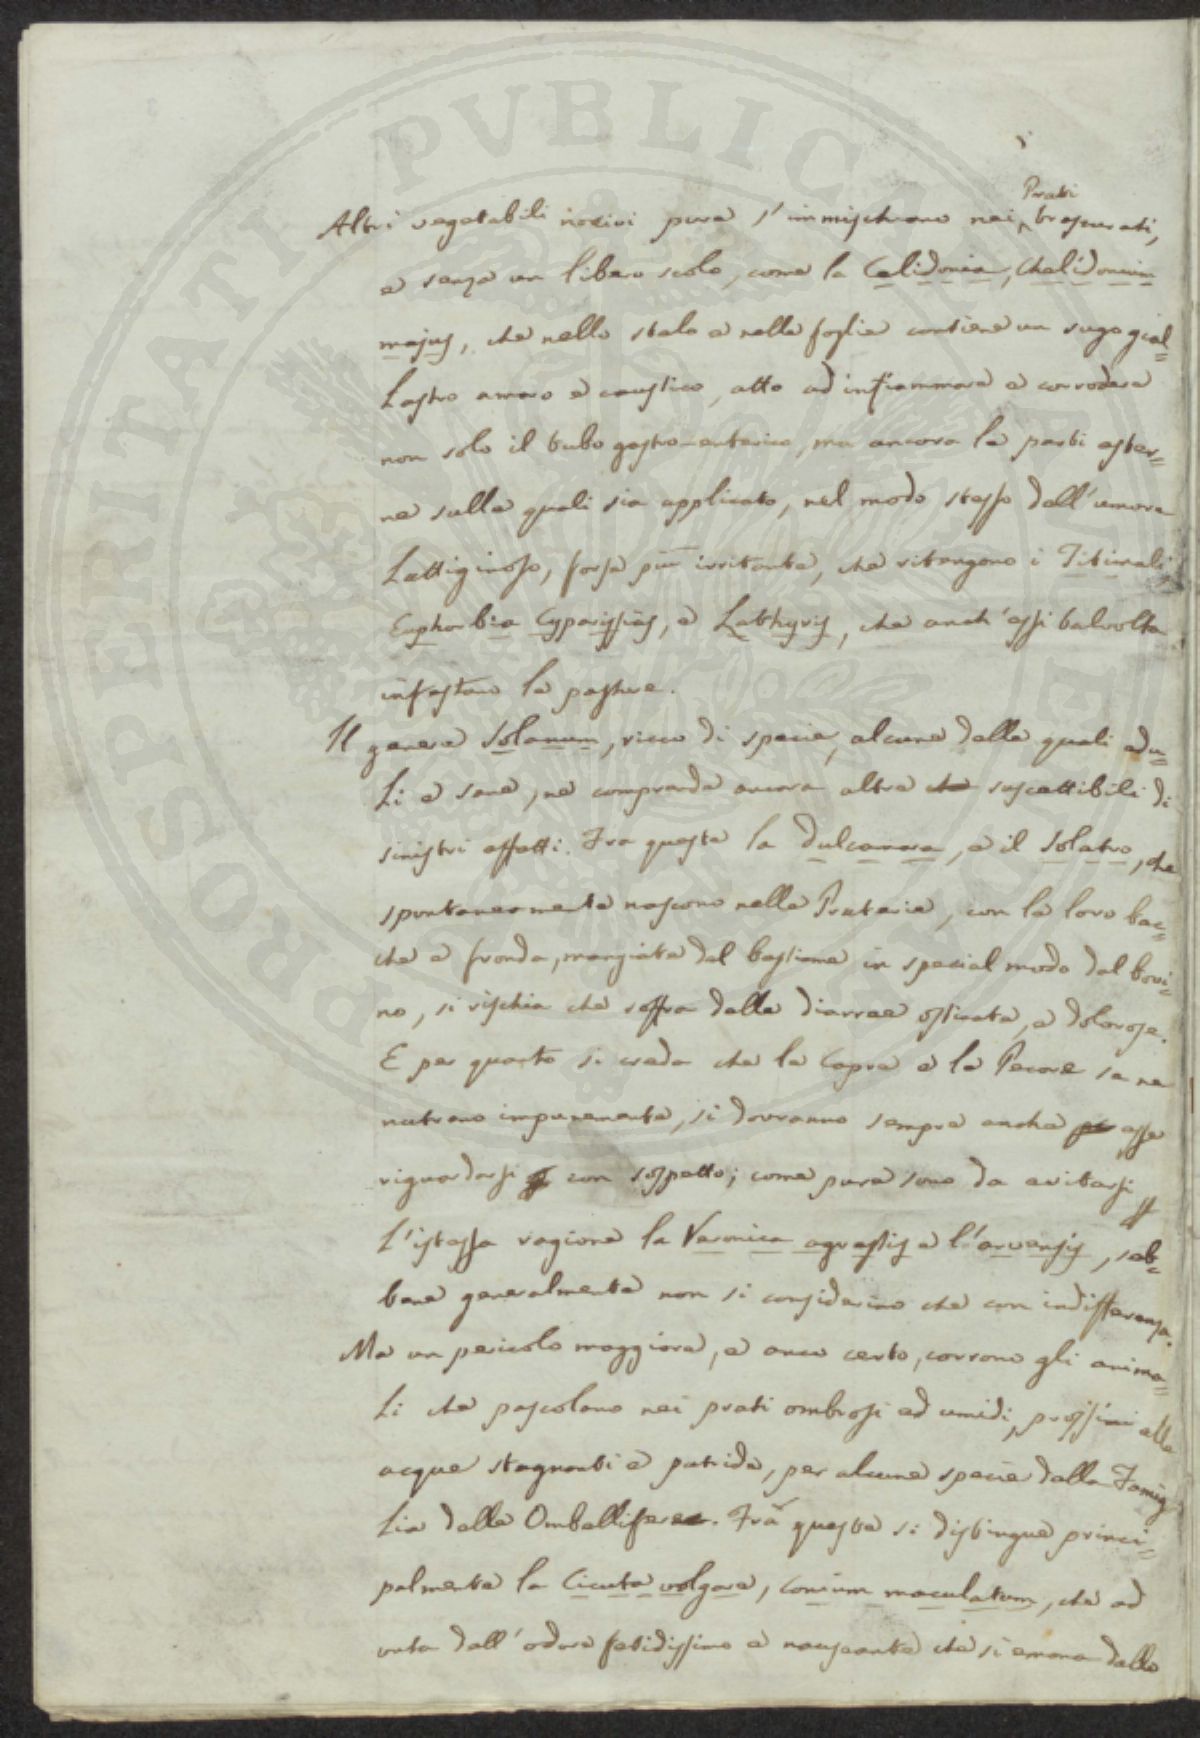 Altri vegetabili nocivi pure s'immischiano nei Prati trascurati,
e senza un libero scolo, come la Celidonia, Chelidonium
majus, che nello stelo e nelle foglie contiene un sugo gial=
lastro amaro e caustico, atto ad infiammare e corrodere
non solo il tubo gastro-enterico, ma ancora le parti ester=
ne sulle quali sia applicato, nel modo stesso dell'umore
Lattiginoso, forse più irritante, che ritengono i Titimali
Euphorbia Cyparissias, e Lathyris, che anch'essi talvolta
infestano le pasture.
Il genere Solanum, ricco di specie, alcune delle quali edu=
li e sane, ne comprende ancora altre che suscettibili di
sinistri effetti. Fra queste la dulcamara, e il Solatro, che
spontaneamente nascono nelle Praterie, con le loro bac=
che e fronde, mangiate dal bestiame in special modo dal bovi=
no, si rischia che soffra delle diarree ostinate, e dolorose.
E per quanto si creda che le Capre e le Pecore se ne
nutrano impunemente, si dovranno sempre anche per esse
riguardarsi con sospetto; come pure sono da evitarsi p
l'istessa ragione la Veronica agrestis e l'arvensis, seb=
bene generalmente non si considerino che con indifferenza.
Ma un pericolo maggiore, e anco certo, corrono gli anima=
li che pascolano nei prati ombrosi ed umidi, prossimi alle
acque stagnanti e putride, per alcune specie della Famig
lia delle Ombellifere. Frà queste si distingue princi=
palmente la Cicuta volgare, Conium maculatum, che ad
onta dell'odore fetidissimo e nauseante che si emana dalle
PROSPERITATI PVBLICAE AVGENDAE